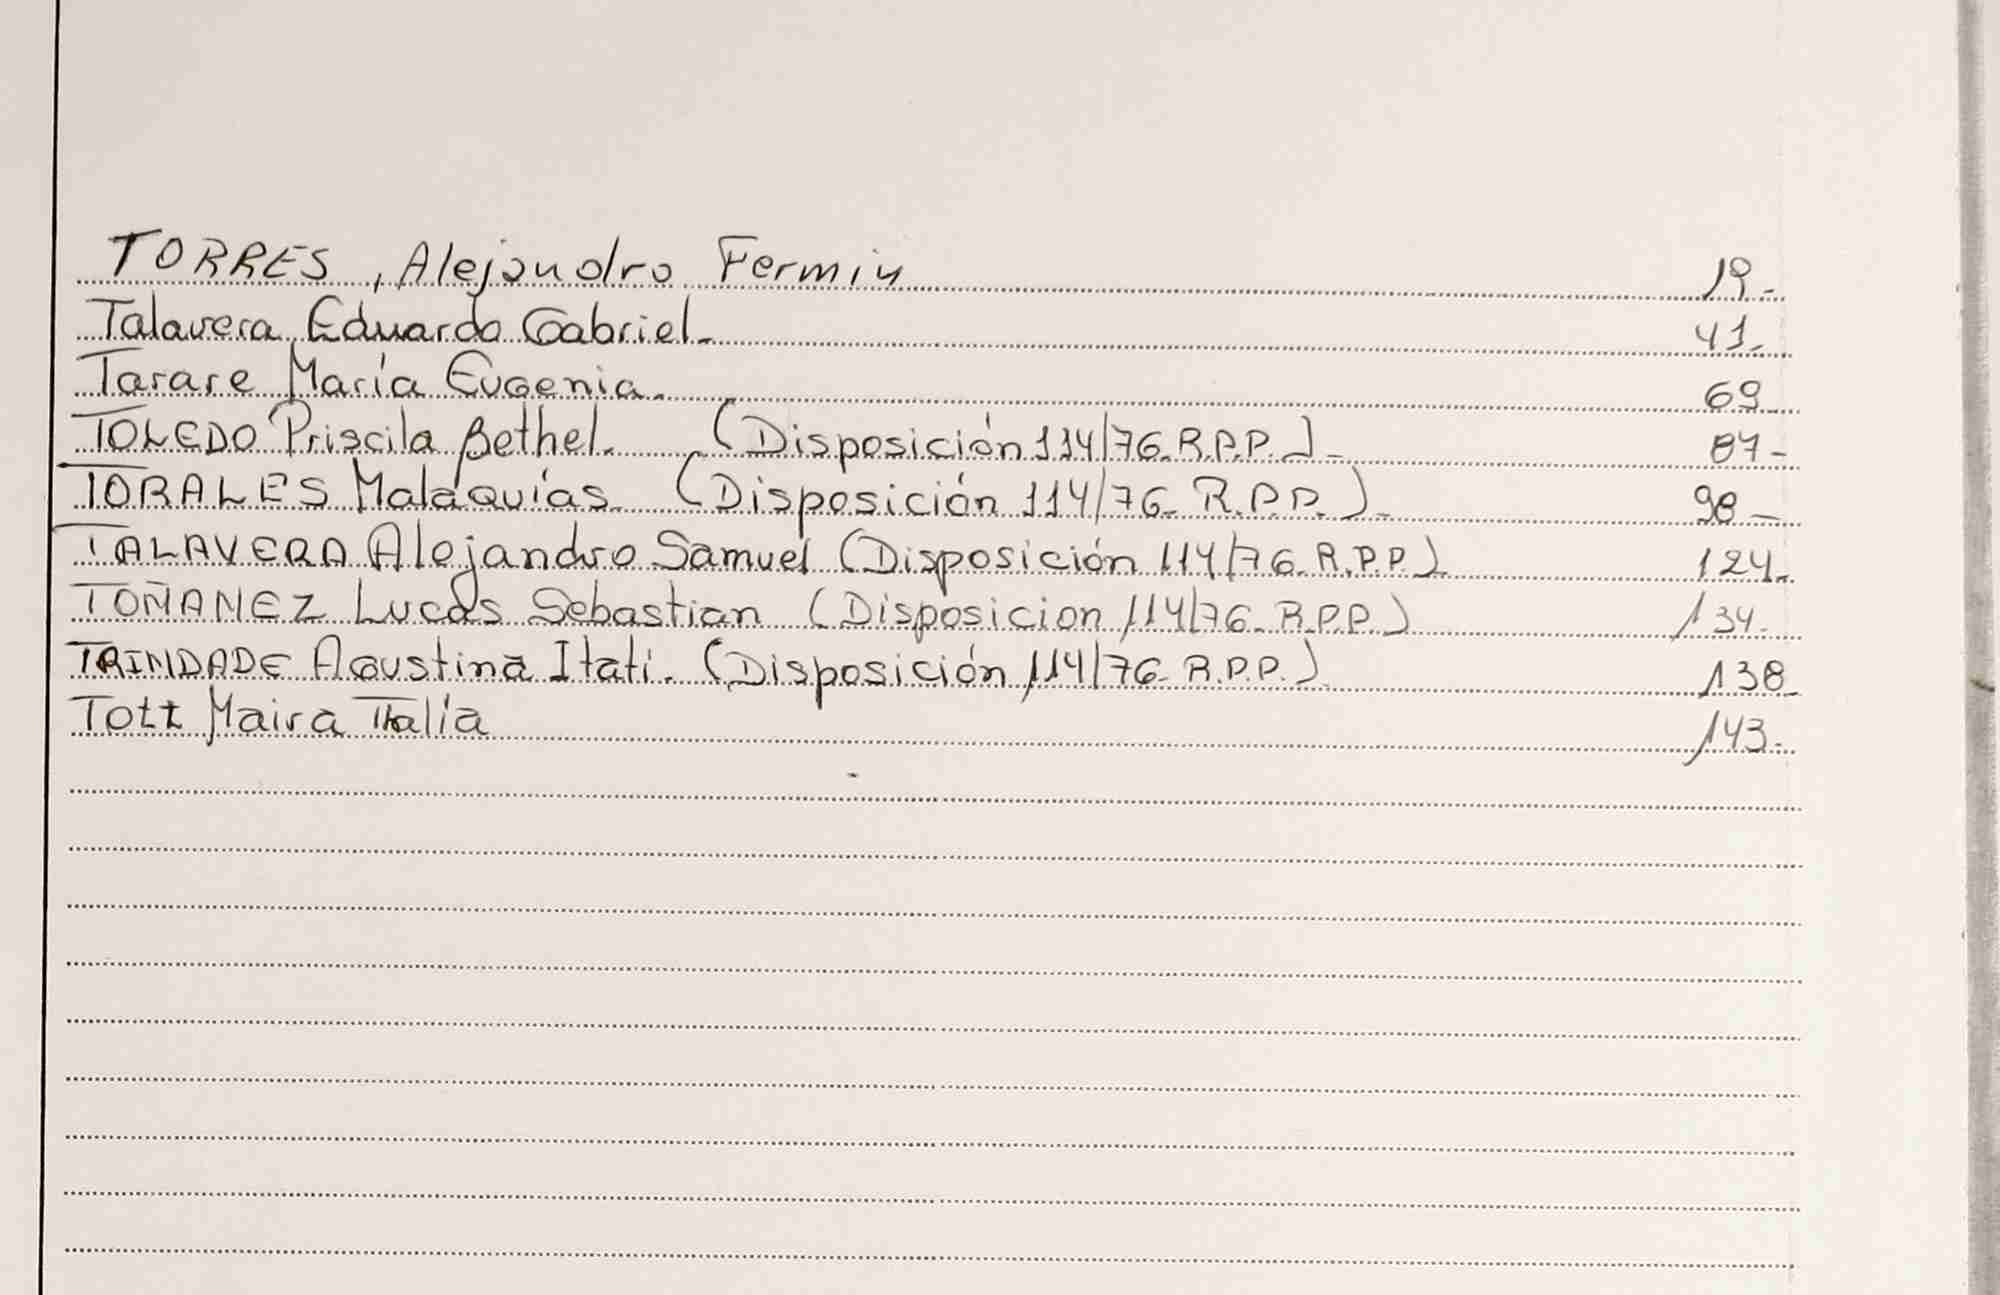 TORRES, Alejandro Fermin 19-
Talavera, Eduardo Gabriel- 41-
Tarare María Eugenia- 69-
TOLEDO Priscila Bethel. (Disposición 114/76 R.P.P.)- 87-
TORALES Malaquías. (Disposición 114/76- R.P.P.)- 98-
TALAVERA Alejandro Samuel (Disposición 114/76- R.P.P.) 124-
TOÑANEZ Lucas Sebastian (Disposicion 114/76- R.P.P.) 134-
TRINDADE Agustina Itatí. (Disposición 114/76- R.P.P.) 138-
Tott Maira Thalía 143-